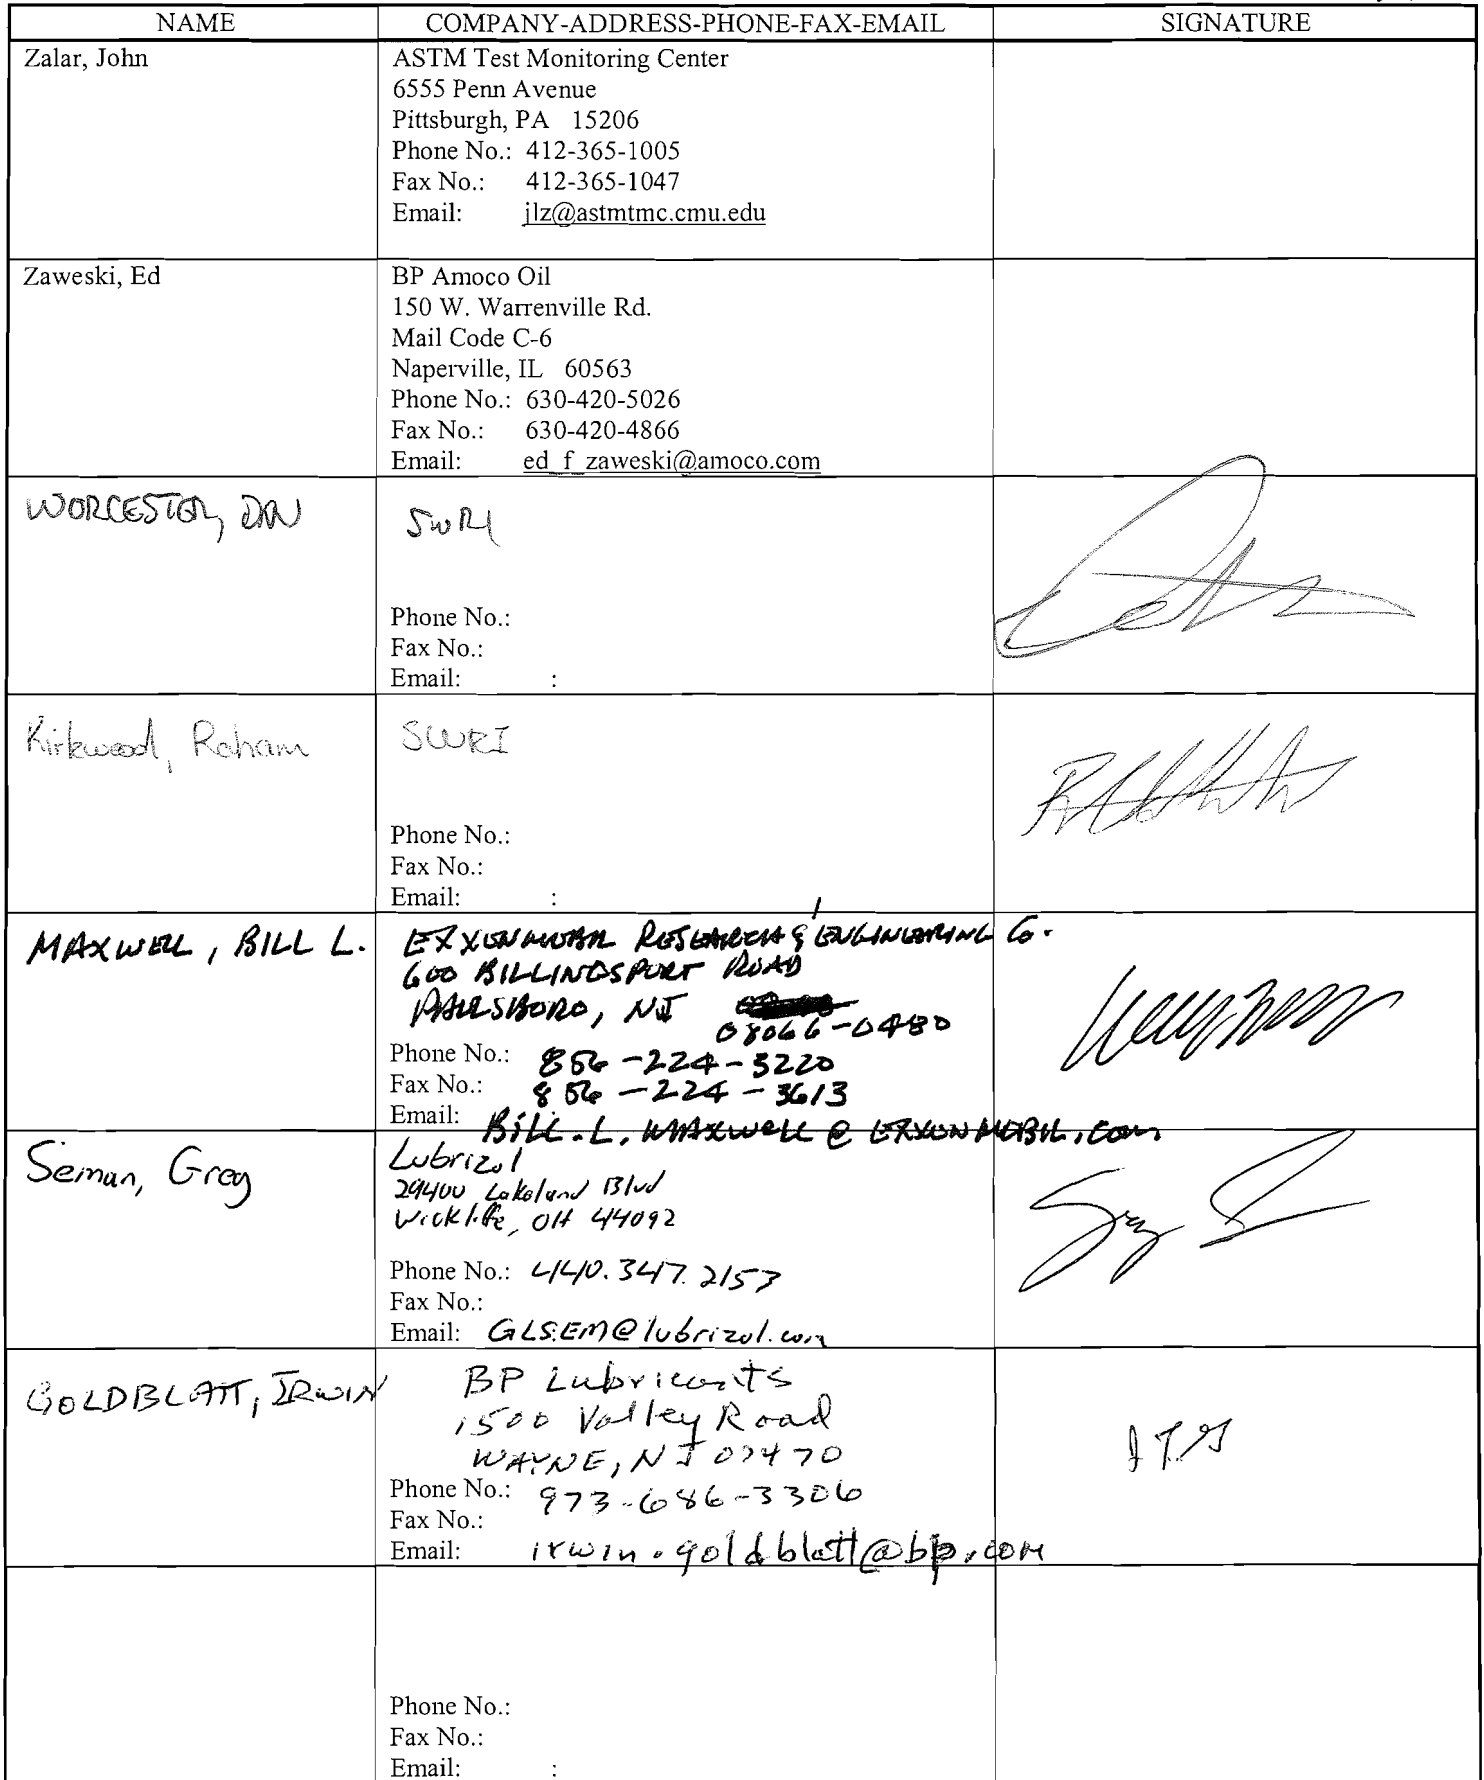 NAME COMPANY-ADDRESS-PHONE-FAX-EMAIL SIGNATURE
Zalar, John
ASTM Test Monitoring Center
6555 Penn Avenue
Pittsburgh, PA 15206
Phone No.: 412-365-1005
Fax No.: 412-365-1047
Email: jlz@astmtmc.cmu.edu
Zaweski, Ed
BP Amoco Oil
150 W. Warrenville Rd.
Mail Code C-6
Naperville, IL 60563
Phone No.: 630-420-5026
Fax No.: 630-420-4866
Email: ed_f_zaweski@amoco.com
WORCESTER, DAN
SWRI
Phone No.:
Fax No.:
Email: :
Kirkwood, Raham
SWRI
Phone No.:
Fax No.:
Email: :
MAXWELL, BILL L.
EXXONMOBIL RESEARCH & ENGINEERING Co.
600 BILLINGSPORT ROAD
PAULSBORO, NJ
08066-0480
Phone No.: 856-224-3220
Fax No.: 856-224-3613
Email: BILL.L.MAXWELL@EXXONMOBIL.COM
Seman, Greg
Lubrizol
29400 Lakeland Blvd
Wickliffe, OH 44092
Phone No.: 440.347.2153
Fax No.:
Email: GLSEM@lubrizol.com
GOLDBLATT, IRWIN
BP Lubricants
1500 Valley Road
WAYNE, NJ 07470
Phone No.: 973-686-3306
Fax No.:
Email: irwin.goldblatt@bp.com
Phone No.:
Fax No.:
Email: :